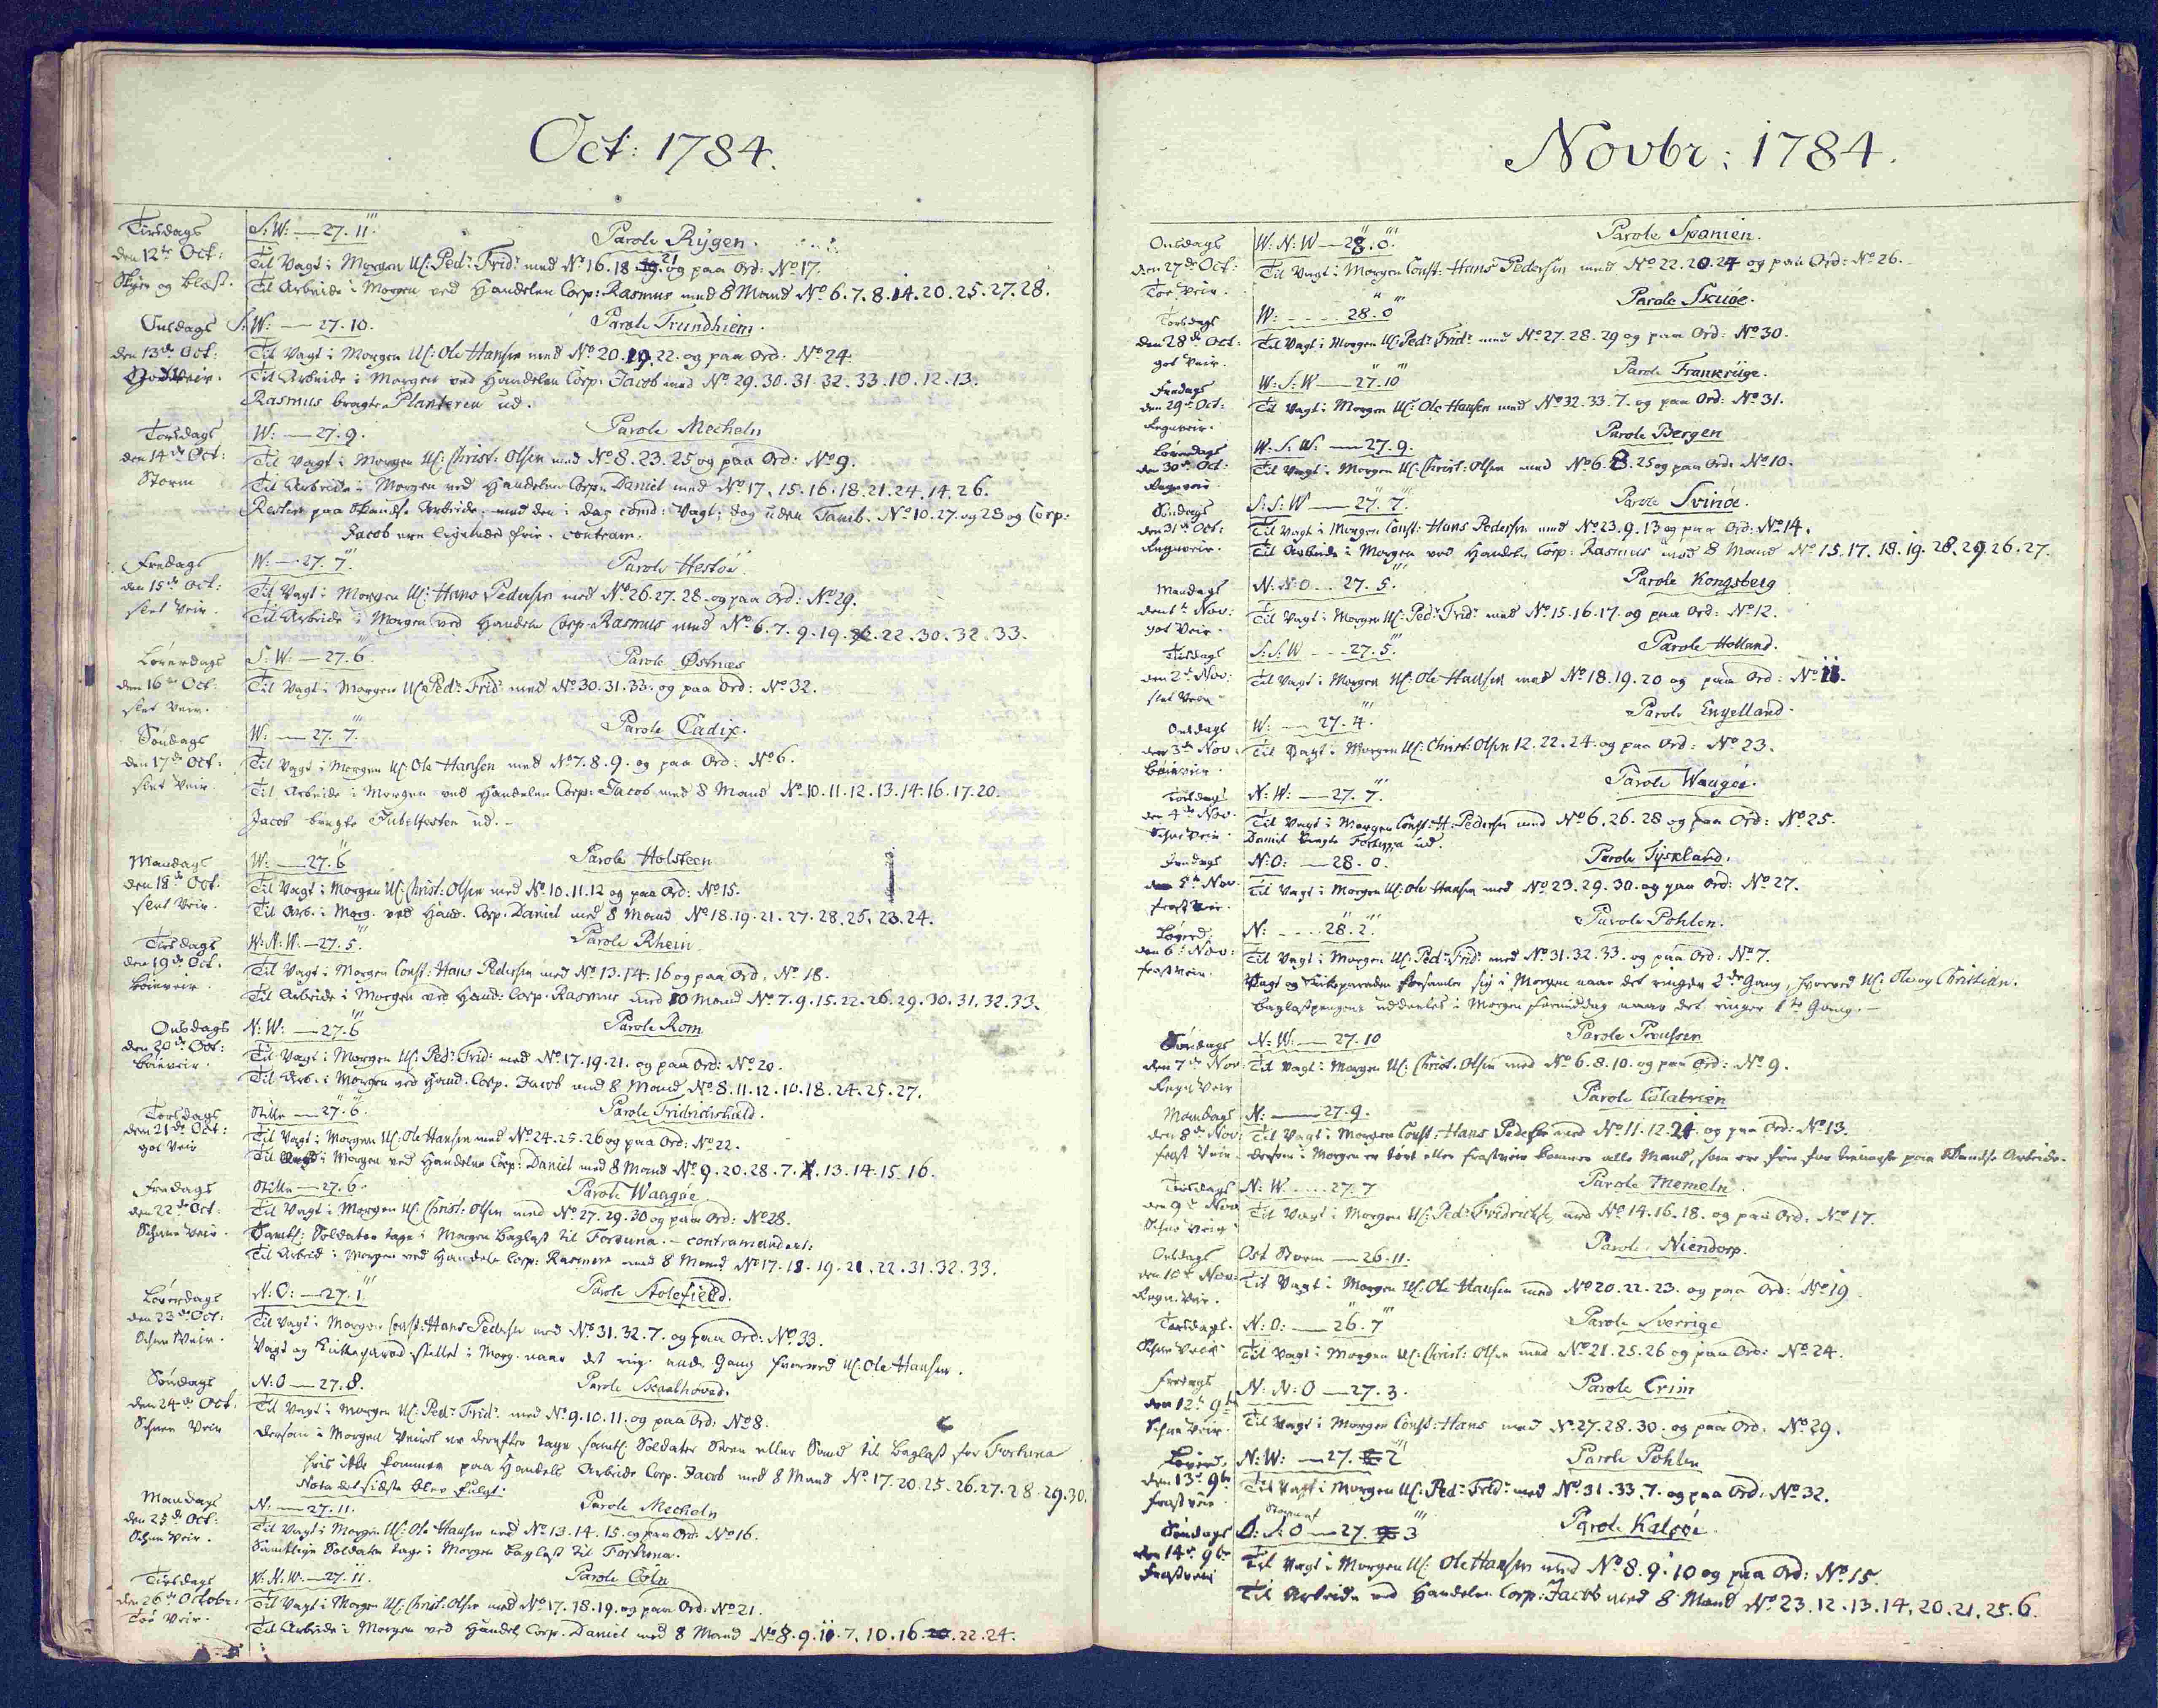 Oct: 1784.
Tirsdags S:W: — 27. 11. Parole Rÿgen.
den 12te Oct: Til Vagt i Morgen U: Ped: Frid: med No 16. 18. 21. og paa Ord: No 17.
og blæst. Til Arbeide i Morgen ved Handelen Corp: Rasmus med 8 Mand No 6. 7. 8. 14. 20. 25. 27. 28.
Onsdags S:W: — 27. 10. Parole Trundhiem.
den 13de Oct: Til Vagt i Morgen U: Ole Hansen med No 20. 19. 22. og paa Ord: No 24.
God Veir. Til Arbeide i Morgen ved Handelen Corp: Jacob med No 29. 30. 31. 32. 33. 10. 12. 13.
Rasmus bragte Planteren ud.
Torsdags W: — 27. 9. Parole Mecheln
den 14de Oct: Til Vagt i Morgen U: Christ: Olsen med No 8. 23. 25 og paa Ord: No 9.
Storm Til Arbeide i Morgen ved Handelen Corp: Daniel med No 17. 15. 16. 18. 21. 24. 14. 26.
Resten paa Skandse Arbeide, med den i dag comd: Vagt; dog uden Tamb. No 10. 27. og 28 og Corp:
Jacob ere ligeledes frie. contram.
Fredags W: — 27. 7. Parole Hestöe.
den 15de Oct: Til Vagt i Morgen U: Hans Pedersen med No 26. 27. 28. og paa Ord: No 29.
slet Veir. Til Arbeide i Morgen ved Handelen Corp: Rasmus med No 6. 7. 9. 19. 22. 30. 32. 33.
Løverdags S:W: — 27. 6. Parole Østnæs
den 16de Oct: Til Vagt i Morgen U: Ped: Frid: med No 30. 31. 33. og paa Ord: No 32.
slet Veir.
Søndags W: — 27. 7. Parole Cadix.
den 17de Oct: Til Vagt i Morgen U: Ole Hansen med No 7. 8. 9. og paa Ord: No 6.
slet Veir. Til Arbeide i Morgen ved Handelen Corp: Jacob med 8 Mand No 10. 11. 12. 13. 14. 16. 17. 20.
Jacob bragte Jubelfesten ud.
Mandags W: — 27. 6 Parole Holsteen
den 18de Oct. Til Vagt i Morgen U: Christ: Olsen med No 10. 11. 12 og paa Ord: No 15.
slet Veir. Til Arb. i Morg. ved Hand. Corp. Daniel med 8 Mand No 18. 19. 21. 27. 28. 25. 23. 24.
Tirsdags W:N:W. — 27. 5. Parole Rhein
den 19de Oct. Til Vagt i Morgen Const: Hans Pedersen med No 13. 14. 16 og paa Ord. No 18.
Til Arbeide i Morgen ved Hand: Corp. Rasmus med 10 Mand No 7. 9. 15. 22. 26. 29. 30. 31. 32. 33.
Onsdags N:W: — 27. 6 Parole Rom
den 20de Oct: Til Vagt i Morgen U: Ped: Frid: med No 17. 19. 21. og paa Ord: No 20.
Til Arb. i Morgen ved Hand. Corp. Jacob med 8 Mand No 8. 11. 12. 10. 18. 24. 25. 27.
Torsdags Stille — 27. 6. Parole Fridrichshald.
den 21de Oct: Til Vagt i Morgen U: Ole Hansen med No 24. 25. 26 og paa Ord: No 22.
got Veir Til Arbd i Morgen ved Handelen Corp: Daniel med 8 Mand No 9. 20. 28. 7. 13. 14. 15. 16.
Fredags Stille — 27. 6. Parole Waagöe
den 22de Oct: Til Vagt i Morgen U: Christ: Olsen med No 27. 29. 30 og paa Ord: No 28.
Schnee Veir. Samtl: Soldater tage i Morgen Baglast til Fortuna. — contramandert:
Til Arbeid i Morgen ved Handele Corp: Rasmus med 8 Mand No 17. 18. 19. 21. 22. 31. 32. 33.
Løverdags N:O: — 27. 1. Parole Stolefield.
den 23de Oct: Til Vagt i Morgen Const: Hans Pedersen med No 31. 32. 7. og paa Ord: No 33.
Schnee Veir. Vagt og Kirkeparad stilles i Morg. naar det ring. anden Gang hvorved U: Ole Hansen.
Søndags N:O — 27. 8. Parole Skaalhoved.
den 24de Oct. Til Vagt i Morgen U: Ped: Frid: med No 9. 10. 11. og paa Ord: No 8.
Schnee Veir Dersom i Morgen Veiret er derefter tage samtl. Soldater Steen eller Sand til Baglast for Fortuna
hvis ikke kommer paa Handels Arbeide Corp. Jacob med 8 Mand No 17. 20. 25. 26. 27. 28. 29. 30.
Nota det sidste blev fulgt.
Mandags N. — 27. 11. Parole Mecheln
den 25de Oct: Til Vagt i Morgen U: Ole Hansen med No 13. 14. 15. og paa Ord: No 16.
Schnee Veir. Samtlige Soldater tage i Morgen Baglast til Fortuna.
Tirsdags W.N.W. — 27. 11. Parole Cöln
den 26de Octobr: Til Vagt i Morgen U: Christ: Olsen med No 17. 18. 19. og paa Ord: No 21.
Tøe Veir. Til Arbeide i Morgen ved Handel Corp. Daniel med 8 Mand No 8. 9. 11. 7. 10. 16. 22. 24.
Novbr: 1784.
Onsdags W:N:W — 28. 0. Parole Spanien.
den 27de Oct: Til Vagt i Morgen Const: Hans Pedersen med No 22. 20. 24 og paa Ord: No 26.
Tøe Veir.
Torsdags W: — 28. 0 Parole Skuöe.
den 28de Oct: Til Vagt i Morgen U: Ped: Frid: med No 27. 28. 29 og paa Ord: No 30.
got Veir.
Fredags W:S:W — 27. 10 Parole Frankrüge.
den 29de Oct: Til Vagt i Morgen U: Ole Hansen med No 32. 33. 7. og paa Ord: No 31.
Regnveir.
Løverdags W.S.W: — 27. 9. Parole Bergen
den 30te Oct: Til Vagt i Morgen U: Christ: Olsen med No 6. 8. 25 og paa Ord: No 10.
Regnveir
Søndags S:S:W — 27. 7. Parole Svinöe.
den 31te Oct: Til Vagt i Morgen Const: Hans Pedersen med No 23. 9. 13 og paa Ord: No 14.
Regnveir. Til Arbeide i Morgen ved Handele Corp: Rasmus med 8 Mand No 15. 17. 18. 19. 28. 29. 26. 27.
Mandags N:N:O — 27. 5. Parole Kongsberg
den 1te Nov: Til Vagt i Morgen U: Ped: Frid: med No 15. 16. 17. og paa Ord: No 12.
got Veir.
Tirsdags S:S:W — 27. 5. Parole Holland.
den 2de Nov: Til Vagt i Morgen U: Ole Hansen med No 18. 19. 20 og paa Ord: No 11.
slet Veir
Onsdags W: — 27. 4. Parole Engelland.
den 3de Nov: Til Vagt i Morgen U: Christ: Olsen 12. 22. 24. og paa Ord: No 23.
Torsdags N:W: — 27. 7. Parole Waagöe.
den 4de Nov. Til Vagt i Morgen Const: H: Pedersen med No 6. 26. 28 og paa Ord: No 25.
Schnee Veir. Daniel bragte ud.
Fredags N:O: — 28. 0. Parole Tÿskland.
den 5te Nov. Til Vagt i Morgen U: Ole Hansen med No 23. 29. 30. og paa Ord: No 27.
frost Veir.
Løverd: N: — 28. 2. Parole Pohlen.
den 6te Nov: Til Vagt i Morgen U: Ped: Frid: med No 31. 32. 33. og paa Ord: No 7.
frost Veir. Vagt og Kirkeparaden forsamler sig i Morgen naar det ringer 2de Gang, hvorved U: Ole og Christian.
Baglastpengene uddeeles i Morgen formiddag naar det ringer 1te Gang. —
Søndags N:W: — 27. 10 Parole Preussen
den 7de Nov: Til Vagt i Morgen U: Christ. Olsen med No 6. 8. 10. og paa Ord: No 9.
Regn Veir
Mandags N: — 27. 9. Parole Calabrien
den 8de Nov: Til Vagt i Morgen Const: Hans Pedersen med No 11. 12. 24. og paa Ord: No 13.
frost Veir. Dersom i Morgen er tört eller frostveir kommer alle Mand, som ere frie for paa Skandse Arbeide.
Tirsdags N:W. — 27. 7 Parole Memeln.
den 9de Nov Til Vagt i Morgen U: Ped: Fridrichs: med No 14. 16. 18. og paa Ord: No 17.
Schnee Veir
Onsdags Ost Storm — 26. 11. Parole Niendorp.
den 10de Nov: Til Vagt i Morgen U: Ole Hansen med No 20. 22. 23. og paa Ord: No 19.
Regn Veir.
Torsdags. N:O: — 26. 7 Parole Sverrige
Schnee Veir Til Vagt i Morgen U: Christ: Olsen med No 21. 25. 26 og paa Ord: No 24.
Fredags N:N:O — 27. 3. Parole Crim
den 12te 9br Til Vagt i Morgen Const: Hans med No 27. 28. 30. og paa Ord: No 29.
Schnee Veir.
Løverd. N:W: — 27. 2 Parole Pohlen
den 13de 9br Til Vagt i Morgen U: Ped: Frid: med No 31. 33. 7. og paa Ord: No 32.
frost veir
Søndags O:S:O — 27. 3 Parole Kalsöe.
den 14de 9br Til Vagt i Morgen U: Ole Hansen med No 8. 9. 10 og paa Ord: No 15.
Frostveir Til Arbeide ved Handelen Corp: Jacob med 8 Mand No 23. 12. 13. 14. 20. 21. 25. 6.